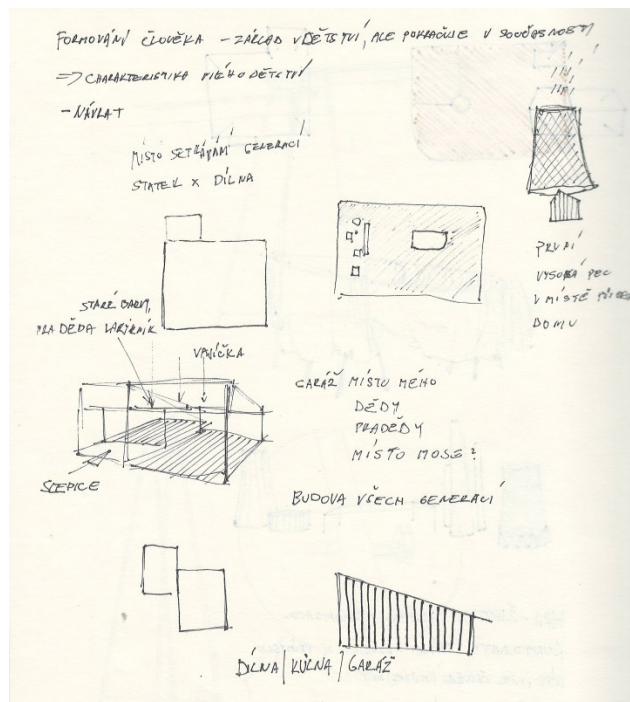 FORMOVÁNÍ ČLOVĚKA – ZÁKLAD V DĚTSTVÍ, ALE POKRAČUJE V SOUČASNOSTI
=> CHARAKTERISTIKA MÉHO DĚTSTVÍ
– NÁVRAT
MÍSTO SETKÁVÁNÍ GENERACÍ
STATEK X DÍLNA
PRVNÍ
VYSOKÁ PEC
V MÍSTĚ
DOMU
STARÉ BARVY,
PRADĚDA LAKÝRNÍK
VANIČKA
SLEPICE
GARÁŽ MÍSTO MÉHO
DĚDY
PRADĚDY
MÍSTO
BUDOVA VŠECH GENERACÍ
DÍLNA | KŮLNA | GARÁŽ